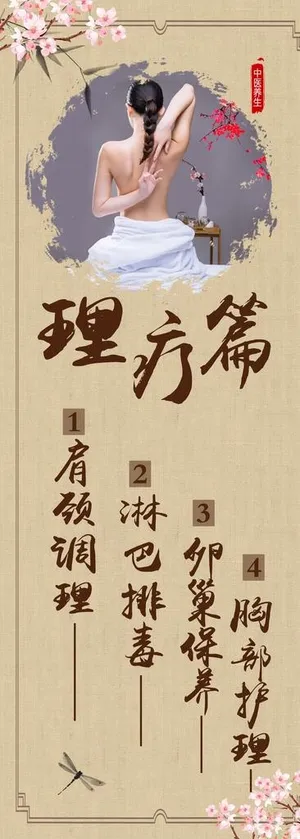 中医养生
理疗篇
1
肩颈调理
2
淋巴排毒
3
卵巢保养
4
胸部护理